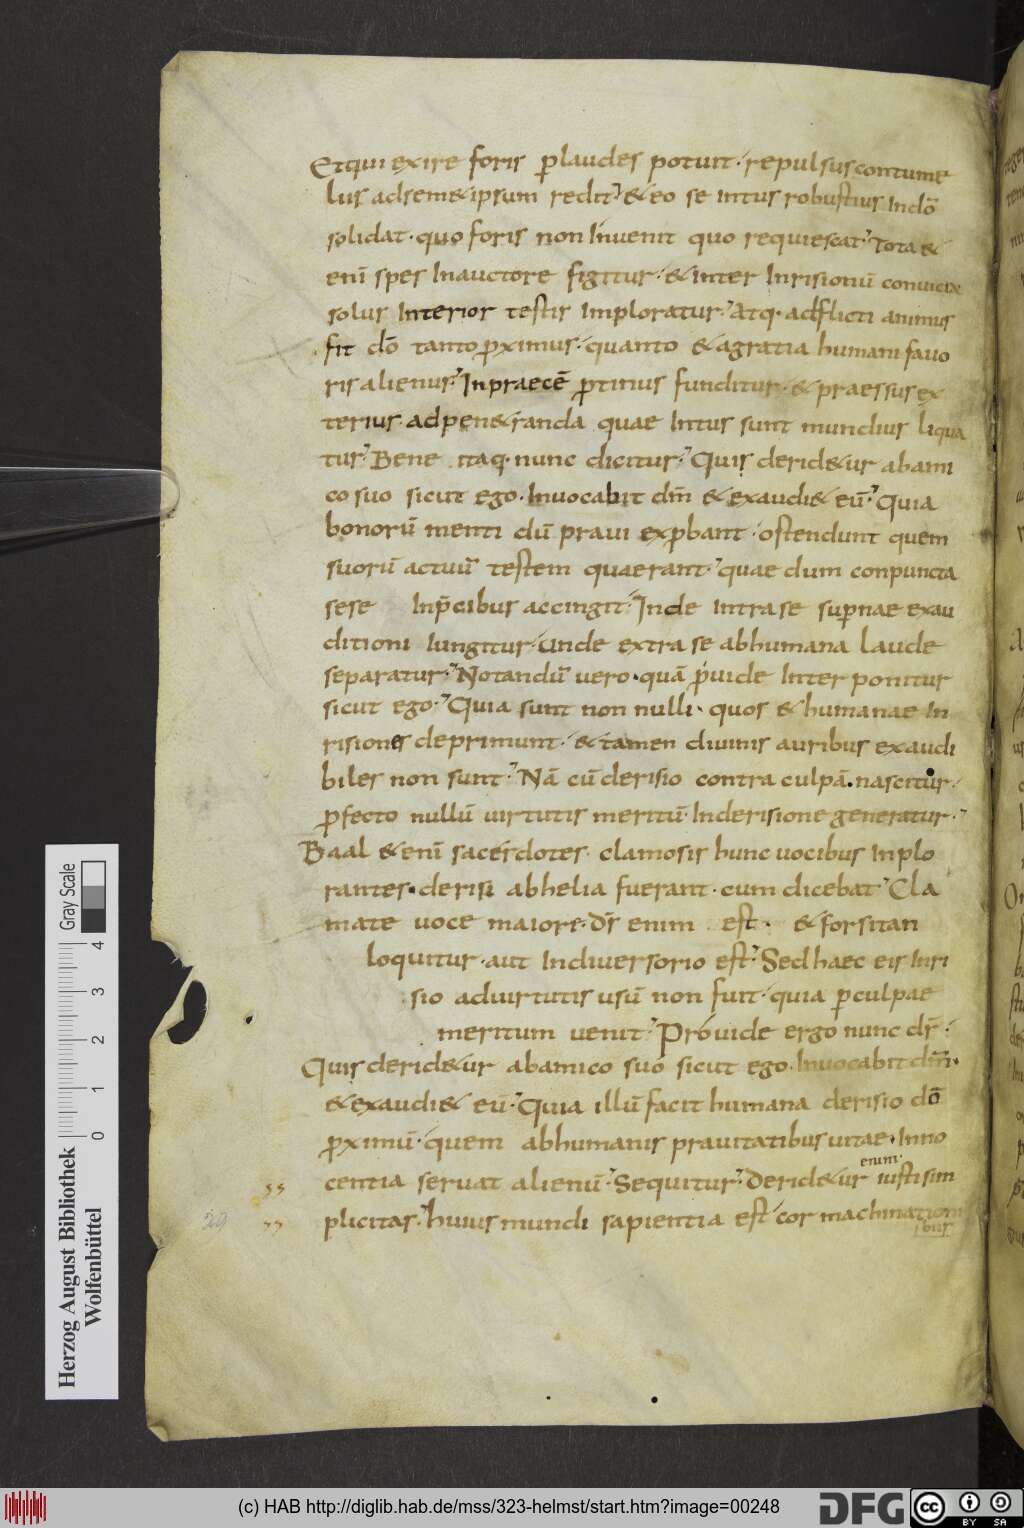 Et qui exire foris p̱ laudes potuit · repulsus contume
lus ad sem&ipsum redit · & eo se intus robustius in dō
solidat · quo foris non invenit quo requiescat · Tota &
enī spes in auctore figitur · & inter inrisionū convicia
solus interior testis imploratur · Atq· adflicti animus
fit dō tanto p̱ximus · quanto & a gratia humani favo
ris alienus · In praecē p̱tinus funditur · & praessus ex
terius · ad pen&randa quae intus sunt mundius liqua
tur · Bene itaq· nunc dicitur · Quis derid&ur ab ami
co suo sicut ego · invocabit dm̄ & exaudi& eū · Quia
bonorū menti dū pravi exp̱bant · ostendunt quem
suorū actuū testem quaerant · quae dum conpuncta
sese in p̄cibus accingit · Inde intra se sup̱nae exau
ditioni iungitur · unde extra se ab humana laude
separatur · Notandū vero · quā p̱vide inter ponitur
sicut ego · Quia sunt non nulli · quos & humanae in
risiones deprimunt · & tamen divinis auribus exaudi
biles non sunt · Nā cū derisio contra culpā · nascitur ·
p̱fecto nullū virtutis meritū · In derisione generatur ·
Baal & enī sacerdotes · clamosis hunc vocibus inplo
rantes · derisi ab helia fuerant · cum dicebat · Cla
mate voce maiore · dś enim est · & forsitan
loquitur · aut in diversorio est · Sed haec eis inri
sio ad virtutis usū non fuit · quia p̱ culpae
meritum venit · Provide ergo nunc dr̄ ·
Quis derid&ur ab amico suo sicut ego · Invocabit dm̄ ·
& exaudi& eū · Quia illū facit humana derisio dō
p̱ximū · quem ab humanis pravitatibus vitae · Inno
centia servat alienū · Sequitur · Derid&ur enim · iusti sim
plicitas · huius mundi sapientia est cor machination
ibus
29
Herzog August Bibliothek
Wolfenbüttel
0 1 2 3 4
Gray Scale
(c) HAB http://diglib.hab.de/mss/323-helmst/start.htm?image=00248
DFG
cc BY SA